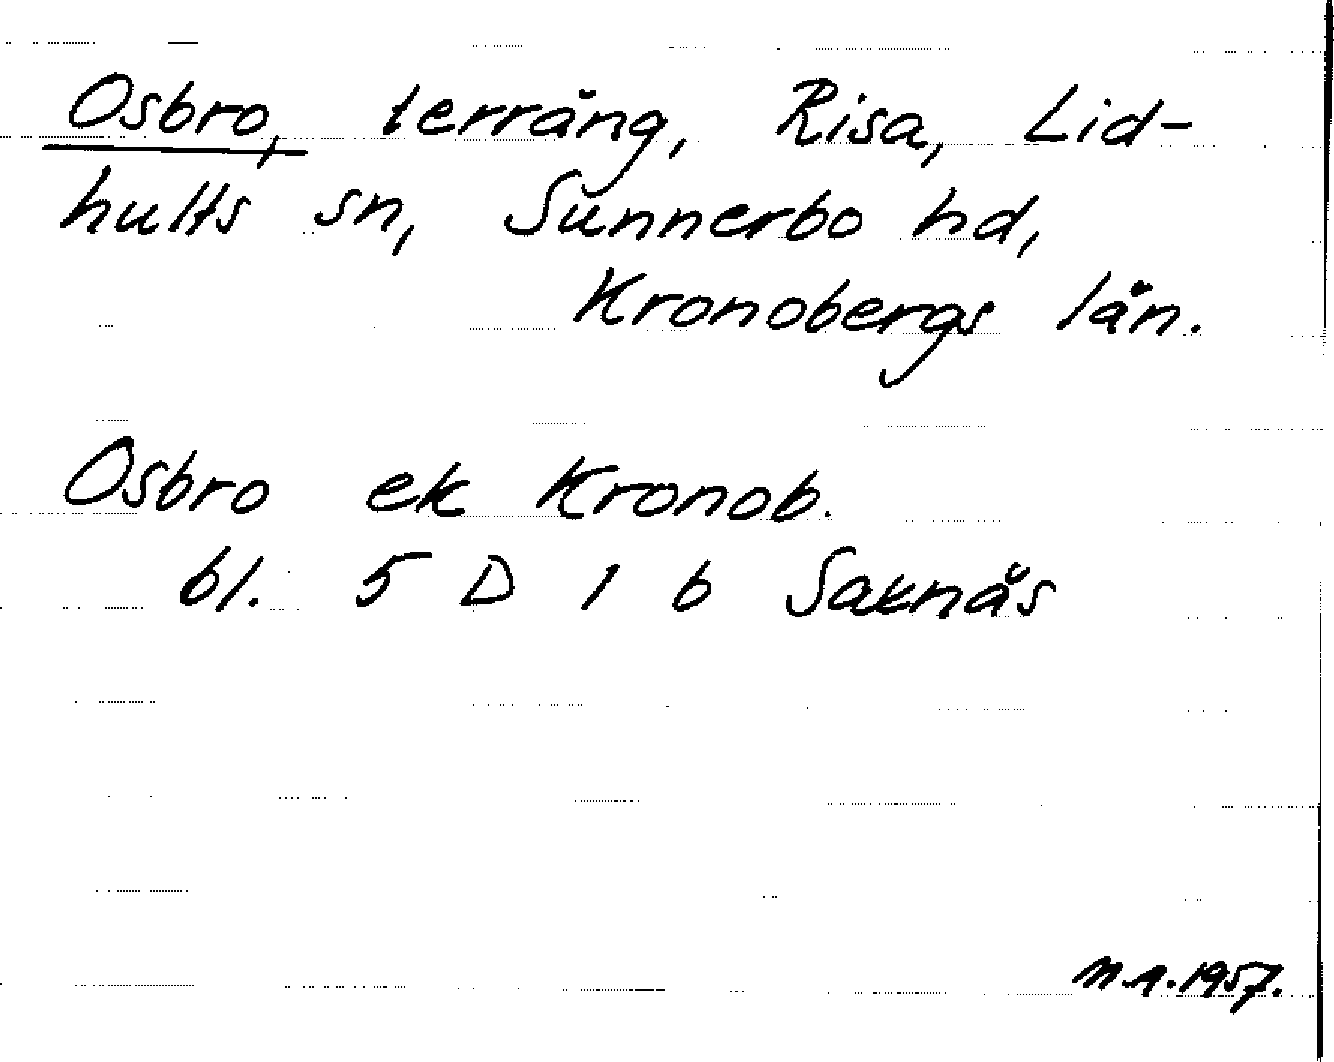 Osbro, terräng, Risa, Lid-
hults sn, Sunnerbo hd,
Kronobergs län.
Osbro ek Kronob.
bl. 5 D 1 b Saxnäs
M.A. 1957.